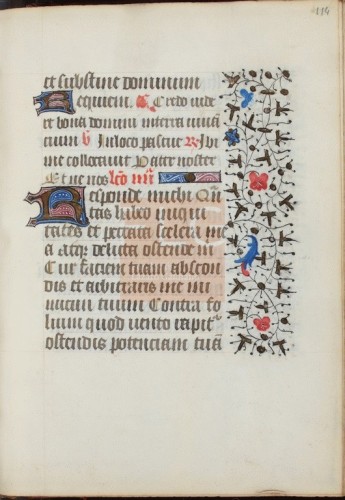 114
et substine dominum
Requiem. A Credo vide
re bona domini in terra viven
cium V In loco pascue R Ibi
me collocavit Pater noster
Et ne nos Leo iiii
Responde michi Quan
tas habeo iniqui
tates et peccata scelera m
a atqz delicta ostende m
Cur faciem tuam abscon
dis et arbitraris me ini
micum tuum Contra fo
lium quod vento rapit
ostendis potenciam tuā